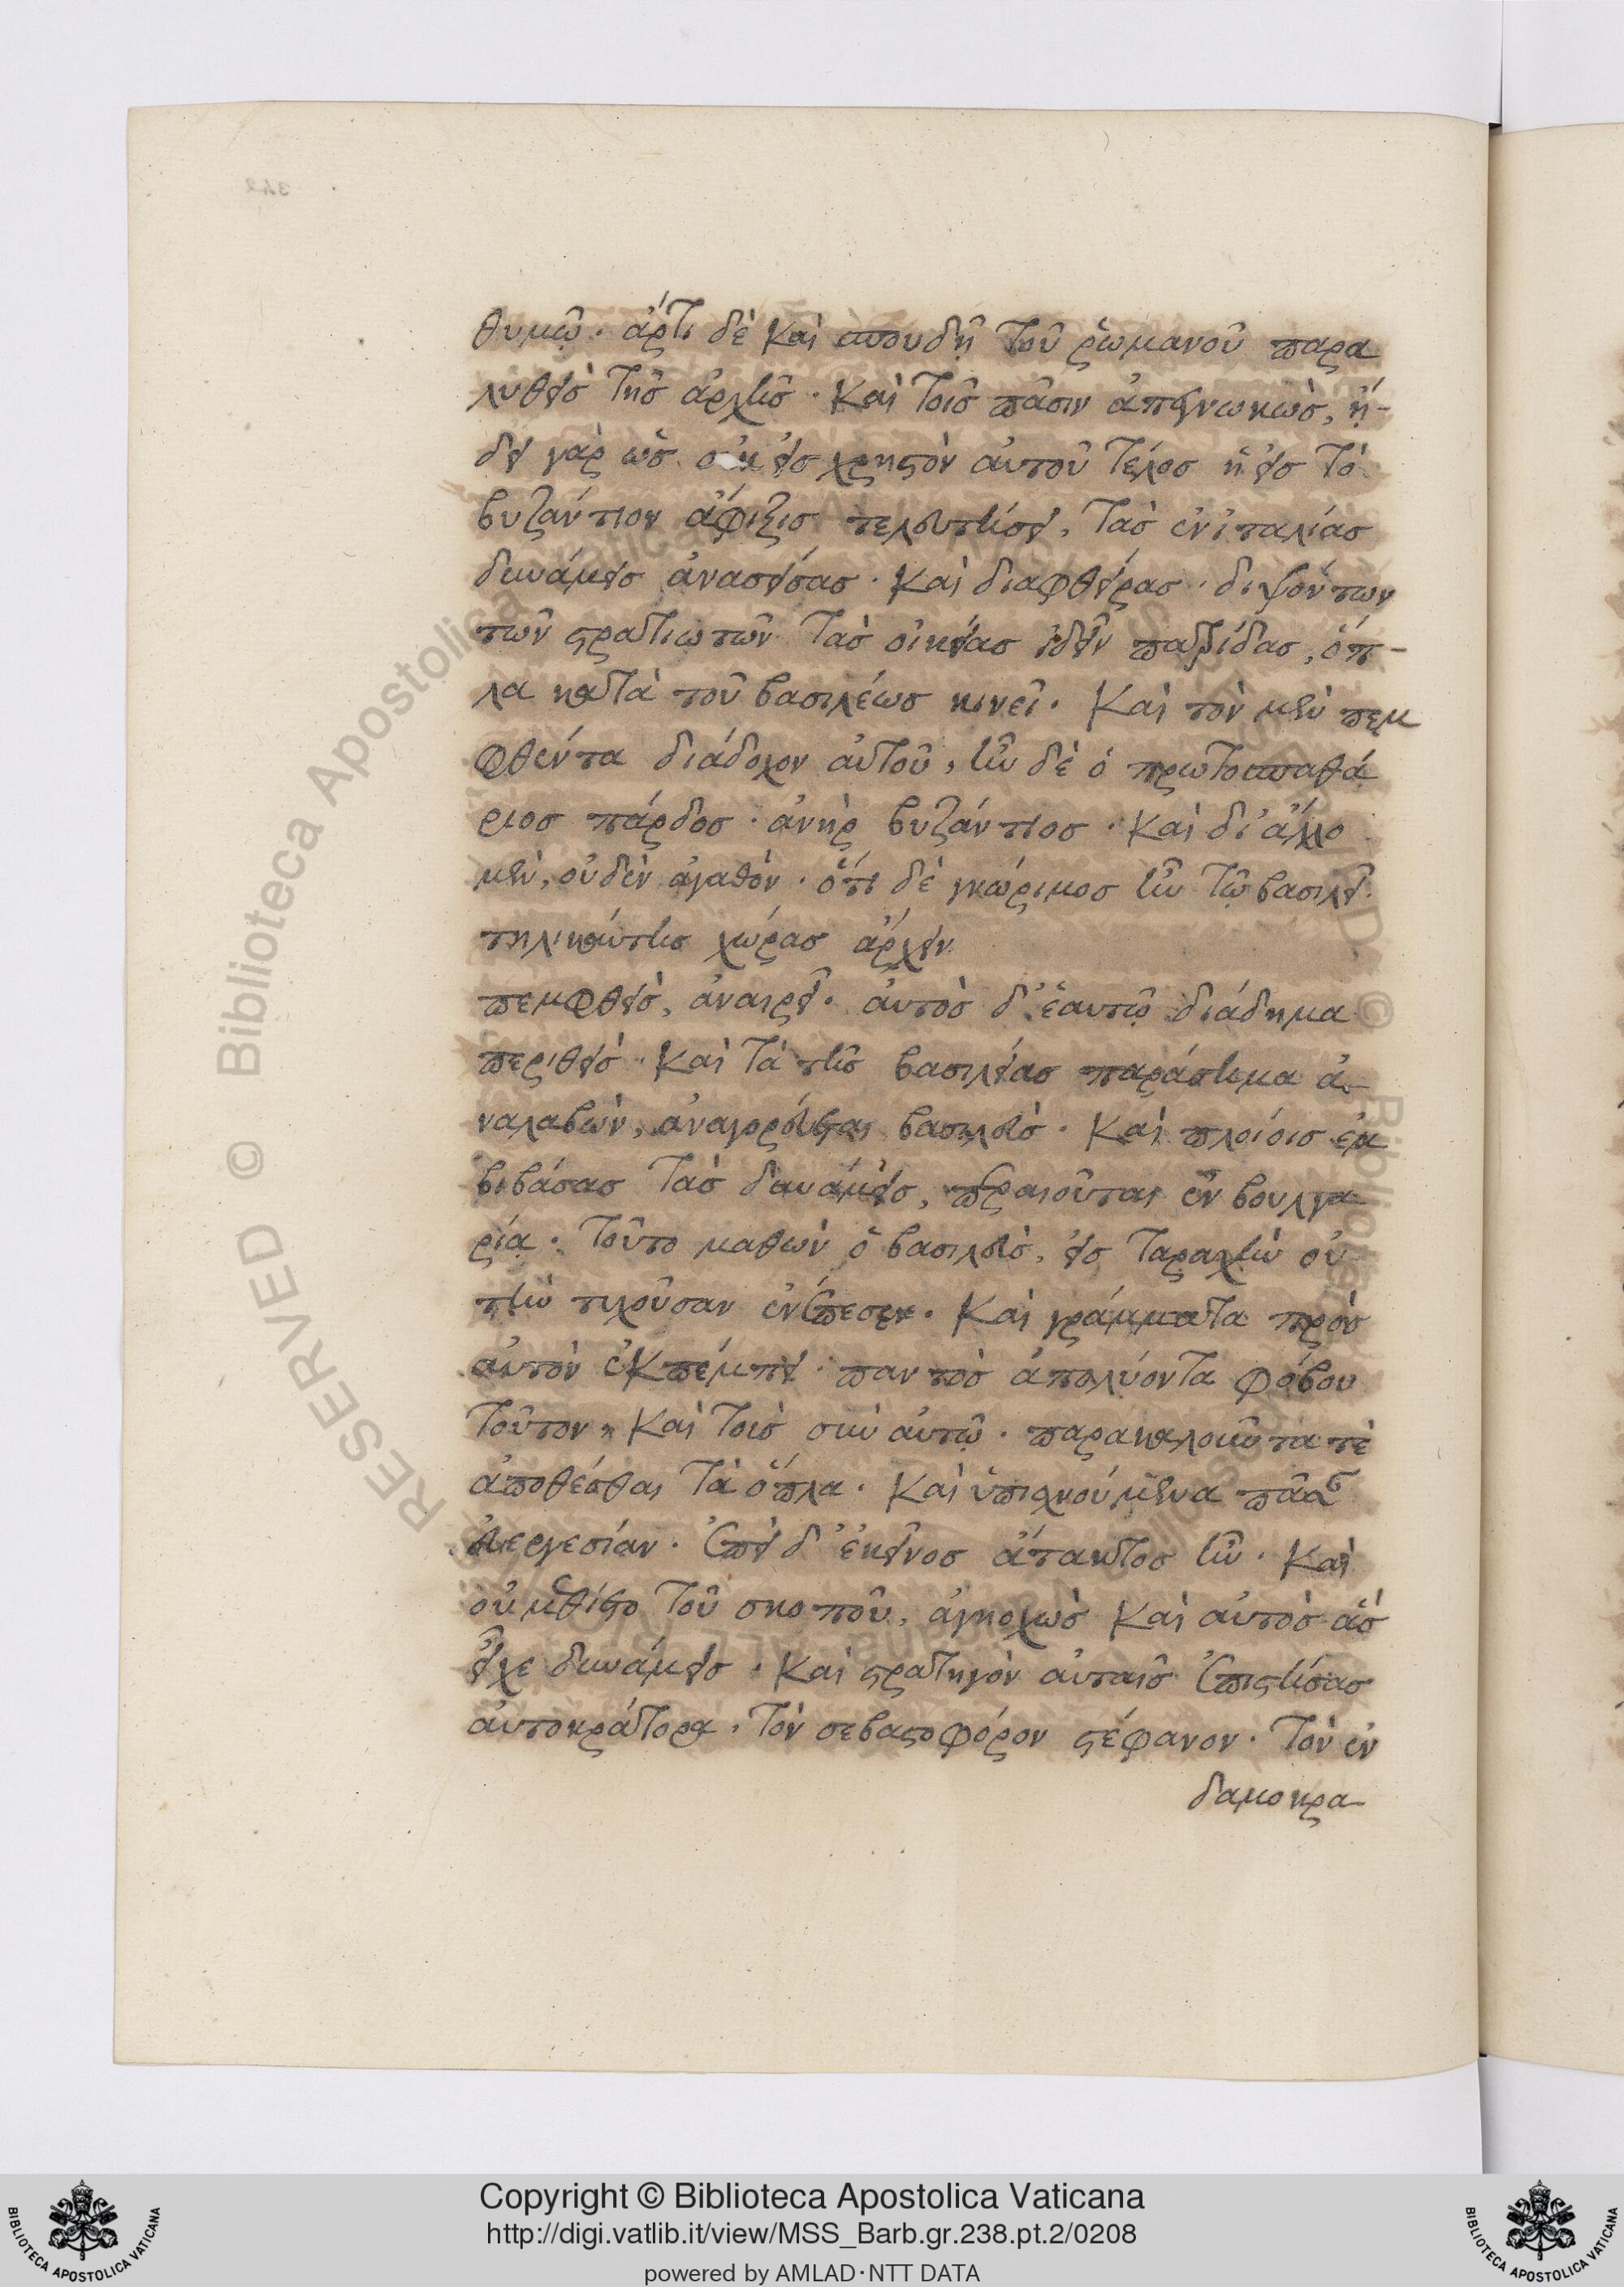 θυμῷ. ἄρτι δὲ καὶ σπουδῇ τοῦ ῥωμανοῦ παρα
λυθεὶς τῆς ἀρχῆς. καὶ τοῖς πᾶσιν ἀπεγνωκὼς, ᾔ-
δει γὰρ ὡς οὐκ εἰς χρηστὸν αὐτοῦ τέλος ἡ εἰς τὸ
βυζάντιον ἄφιξις τελευτήσει, τὰς ἐν ἰταλίας
δυνάμεις ἀνασείσας. καὶ διαφθείρας. διψόντων
τῶν στρατιωτῶν τὰς οἰκείας ἰδεῖν πατρίδας, ὅπ-
λα κατὰ τοῦ βασιλέως κινεῖ. καὶ τὸν μὲν πεμ
φθέντα διάδοχον αὐτοῦ, ἦν δὲ ὁ πρωτοσπαθά
ριος πάρδος. ἀνὴρ βυζάντιος. καὶ δι' ἄλλο
μὲν, οὐδὲν ἀγαθὸν. ὅτι δὲ γνώριμος ἦν τῷ βασιλεῖ.
τηλικαύτης χώρας ἄρχειν
πεμφθεὶς, ἀναιρεῖ. αὐτὸς δ' ἑαυτῷ διάδημα
περιθεὶς. καὶ τὰ τῆς βασιλείας παράσημα ἀ-
ναλαβὼν, ἀναγορεύεται βασιλεὺς. καὶ πλοίοις ἐμ
βιβάσας τὰς δυνάμεις, περαιοῦται ἐν βουλγα
ρίᾳ. τοῦτο μαθὼν ὁ βασιλεὺς, εἰς ταραχὴν οὐ
τὴν τυχοῦσαν ἐνέπεσεν. καὶ γράμματα πρὸς
αὐτὸν ἐκπέμπει. παντὸς ἀπολύοντα φόβου
τοῦτον, καὶ τοὶς σὺν αὐτῷ. παρακαλοῦντα τὲ
ἀποθέσθαι τὰ ὅπλα. καὶ ὑπισχνούμενα πᾶσαν
εὐεργεσίαν. ἐπεὶ δ' ἐκεῖνος ἄτακτος ἦν. καὶ
οὐ μεθίετο τοῦ σκοποῦ, ἀγηοχὼς καὶ αὐτὸς ἃς
εἶχε δυνάμεις. καὶ στρατηγὸν αὐταῖς ἐπιστήσας
αὐτοκράτορα, τὸν σεβαστοφόρον στέφανον. τὸν ἐν
δαμοκρα-
Copyright © Biblioteca Apostolica Vaticana
http://digi.vatlib.it/view/MSS_Barb.gr.238.pt.2/0208
powered by AMLAD·NTT DATA